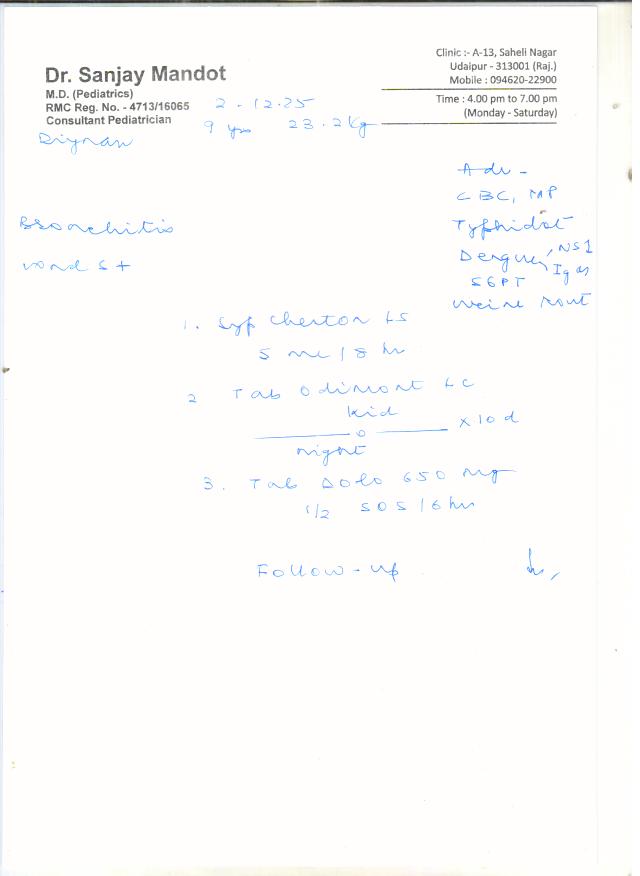 Dr. Sanjay Mandot
M.D. (Pediatrics)
RMC Reg. No. - 4713/16065
Consultant Pediatrician
Clinic :- A-13, Saheli Nagar
Udaipur - 313001 (Raj.)
Mobile : 094620-22900
Time : 4.00 pm to 7.00 pm
(Monday - Saturday)
2.12.25
9 yrs 23.2 kg
Adv -
CBC, MP
Typhidot
Dengue, NS1
Igm
SGPT
Urine Rout
Bronchitis
1. Syp Cheston LS
5 ml / 8 hr
2 Tab Odimont LC
kid
0 x 10 d
night
3. Tab Dolo 650 mg
1/2 SOS / 6 hr
Follow-up